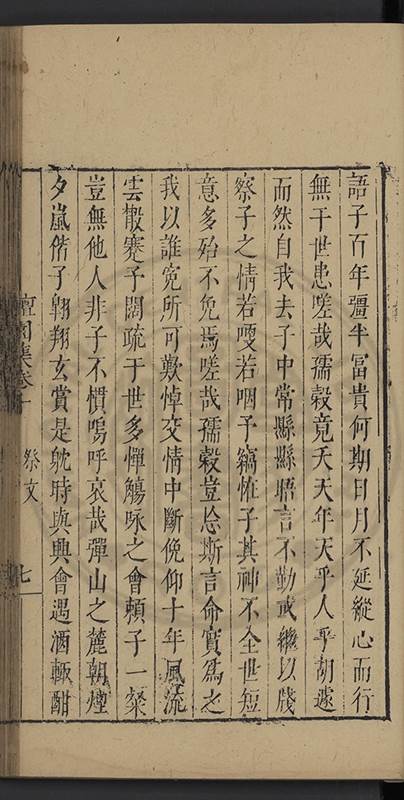 語子百年彊半富貴何期日月不延縱心而行
無干世患嗟哉孺穀竟夭天年天乎人乎胡遽
而然自我去子中常縣縣晤言不勤或繼以牋
察子之情若嗄若咽予竊恠子其神不全世短
意多殆不免焉嗟哉孺穀豈忩斯言命實爲之
我以誰寃所可歎悼交情中斷俛仰十年風流
雲散蹇予闊疏于世多憚觴咏之會賴子一粲
豈無他人非子不慣嗚呼哀哉彈山之麓朝煙
夕嵐偕子翱翔玄賞是躭時與興會遇酒輒酣
集卷 祭文 七